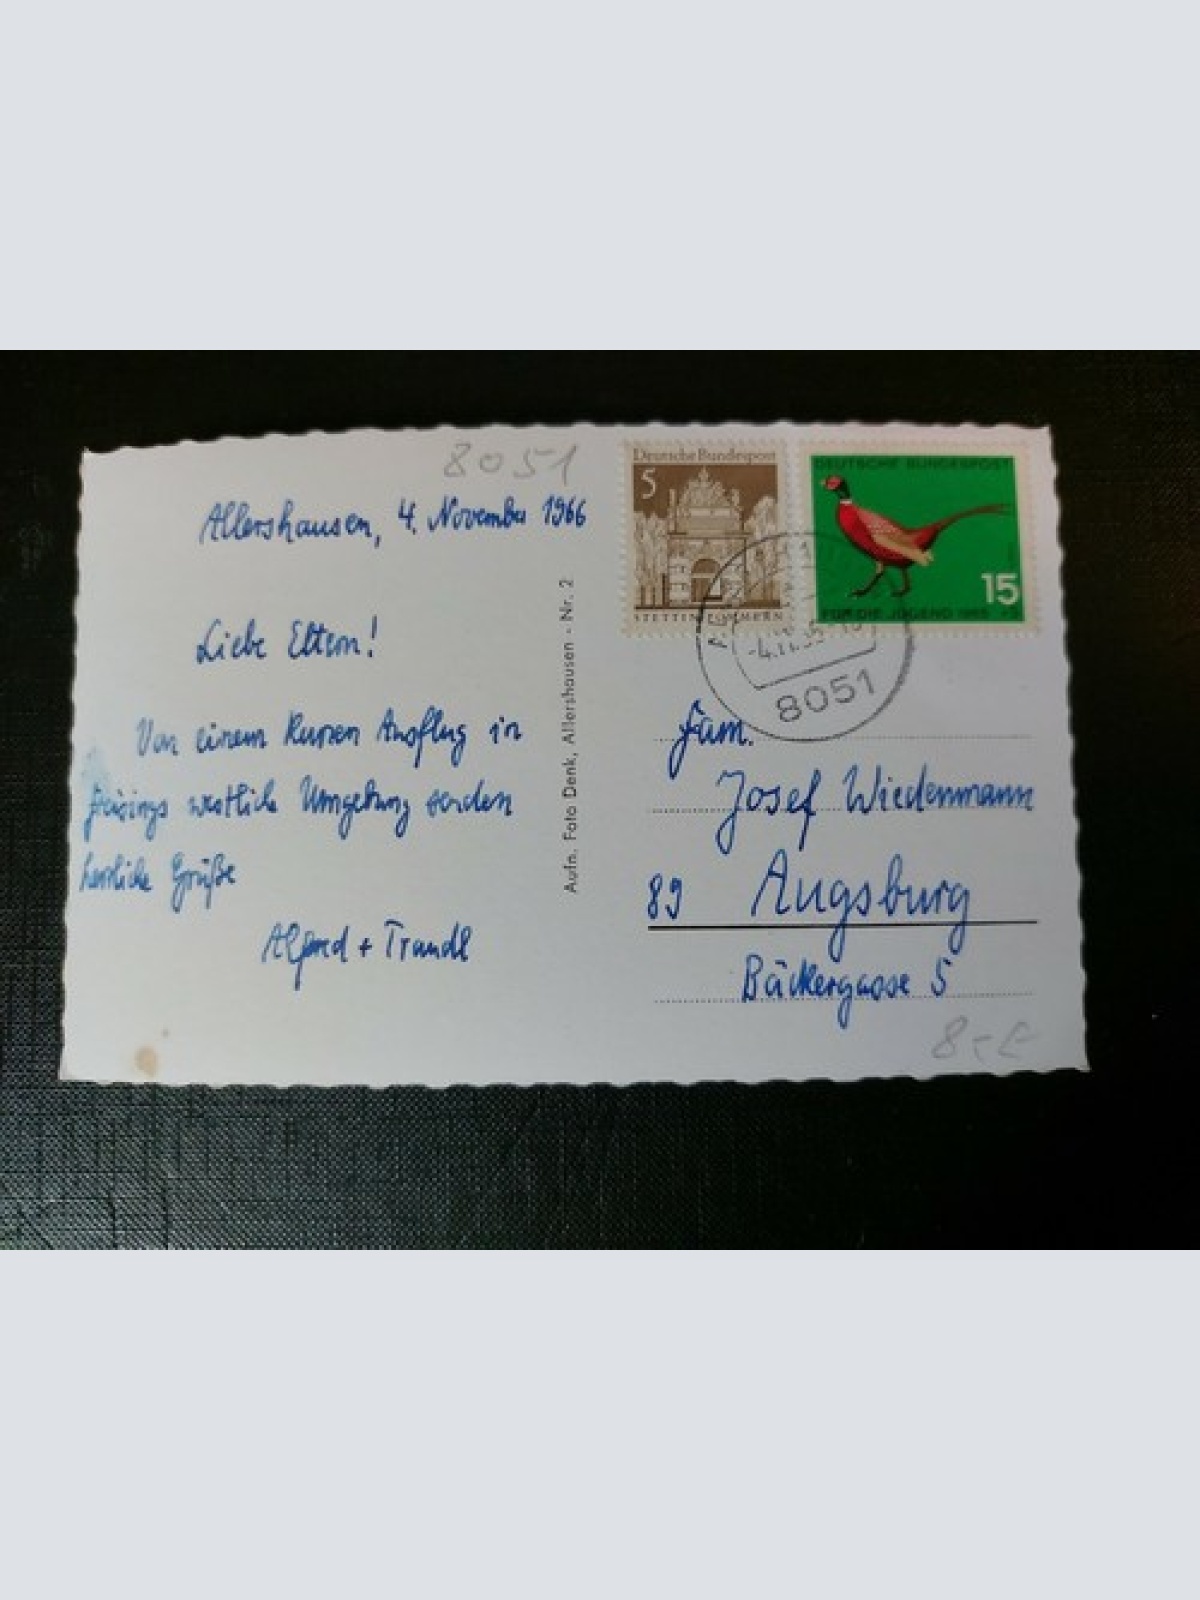 8051
Allershausen, 4. November 1966
Liebe Eltern!
Von einem kurzen Ausflug in
Freisings westliche Umgebung senden
herzliche Grüße
Alfred + Traudl
Aufn. Foto Denk, Allershausen - Nr. 2
Deutsche Bundespost
5
STETTIN POMMERN
DEUTSCHE BUNDESPOST
15
FÜR DIE JUGEND 1965
-4.11.
8051
Fam.
Josef Wiedenmann
89 Augsburg
Bäckergasse 5
8,- €